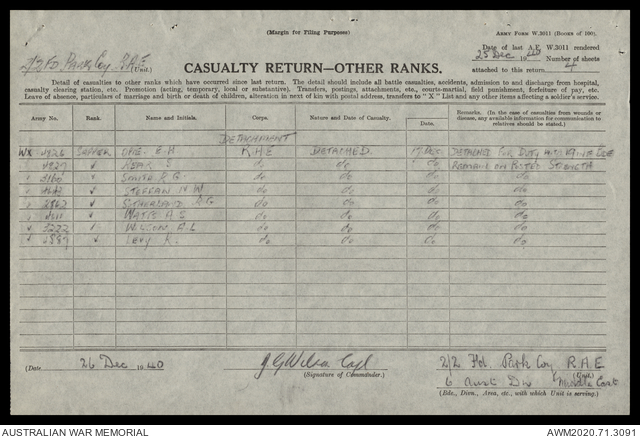 (Margin for Filing Purposes)
ARMY FORM W.3011 (BOOKS OF 100).
2/2 Fd. Park Coy R.A.E (Unit.)
Date of last A.F. W.3011 rendered
25 Dec 1940 Number of sheets
attached to this return 4
CASUALTY RETURN—OTHER RANKS.
Detail of casualties to other ranks which have occurred since last return. The detail should include all battle casualties, accidents, admission to and discharge from hospital,
casualty clearing station, etc. Promotion (acting, temporary, local or substantive). Transfers, postings, attachments, etc., courts-martial, field punishment, forfeiture of pay, etc.
Leave of absence, particulars of marriage and birth or death of children, alteration in next of kin with postal address, transfers to "X" List and any other items affecting a soldier's service.
Army No. Rank. Name and Initials. Corps. Nature and Date of Casualty. Date. Remarks. (In the case of casualties from wounds or disease, any available information for communication to relatives should be stated.)
DETACHMENT
WX 4926 SAPPER E.H R.A.E DETACHED. 17 Dec DETACHED FOR DUTY WITH
4929 " S do do do REMAINS ON POSTED STRENGTH
" " SMITH R G. do do do do
" " N W do do do do
" " SUTHERLAND A G do do do do
" " WATTS A S do do do do
" 3222 " WILSON A.L do do do do
" " Levy K. do do do do
(Date 26 Dec 1940 J G Wilson Capt 2/2 Fd. Park Coy R.A.E
(Signature of Commander.) (Unit.)
6 Aust Div Middle East
(Bde., Divn., Area, etc., with which Unit is serving.)
AUSTRALIAN WAR MEMORIAL AWM2020.71.3091